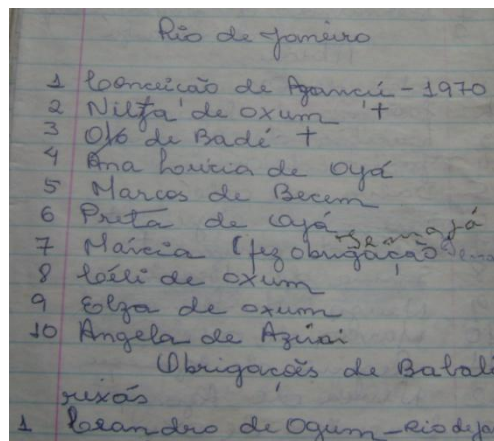 Rio de Janeiro
1 Conceição de Agancú - 1970
2 Nilza de oxum +
3 Ojó de Badé +
4 Ana Lúcia de Oyá
5 Marcos de Becem
6 Preta de Oyá
7 Márcia (fez obrigação Yemanjá
8 Céli de oxum
9 Elza de oxum
10 Angela de Azúai
Obrigações de Babalo
rixás
1 Leandro de Ogum - Rio de ja